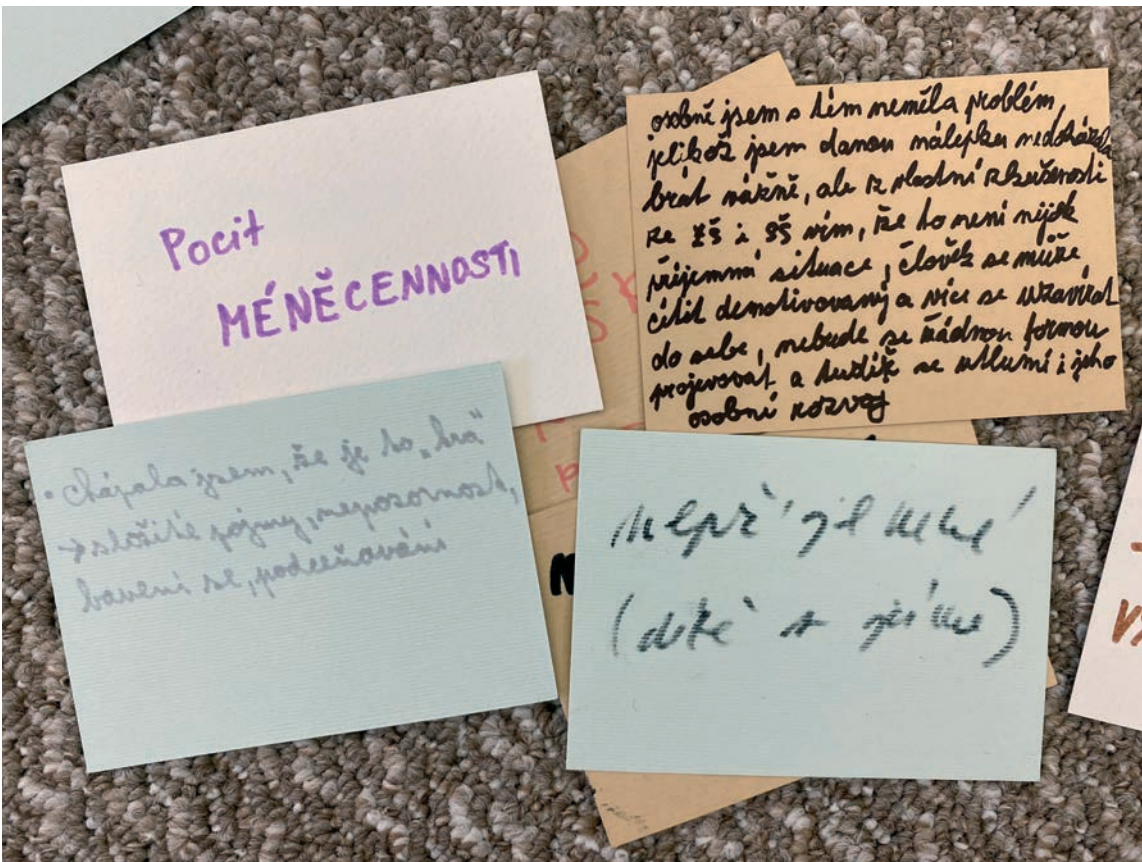 Pocit
MÉNĚCENNOSTI
osobně jsem s tím neměla problém,
jelikož jsem danou nálepku nedokázala
brát vážně, ale z vlastní zkušenosti
ze ZŠ i SŠ vím, že to není nijak
příjemná situace, člověk se může
cítit demotivovaný a více se uzavírat
do sebe, nebude se žádnou formou
projevovat a tudíž se utlumí i jeho
osobní rozvoj
• Chápala jsem, že je to „hra“
→ složité pojmy, nepozornost,
bavení se, podceňování
nepříjemné
(